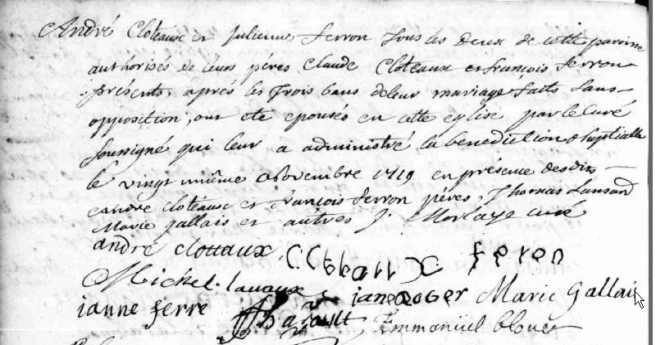 André Cloteaux et Julienne Ferron tous les deux de cette paroisse
authorisés de leurs péres Claude Cloteaux et françois Ferron
présents, aprés les trois bans de leur mariage faits sans
opposition, ont eté epousés en cette eglise par le Curé
soussigné qui leur a administré la benediction Nuptialle
le vingt uniême Novembre 1719 en présence desdits
Cloteaux et François Ferron péres, Thomas
Marie Gallais et autres J. Morlaye curé
andré clottaux feron
Michel lavaux jane Roger Marie Gallais
ianne ferre Emmanüel